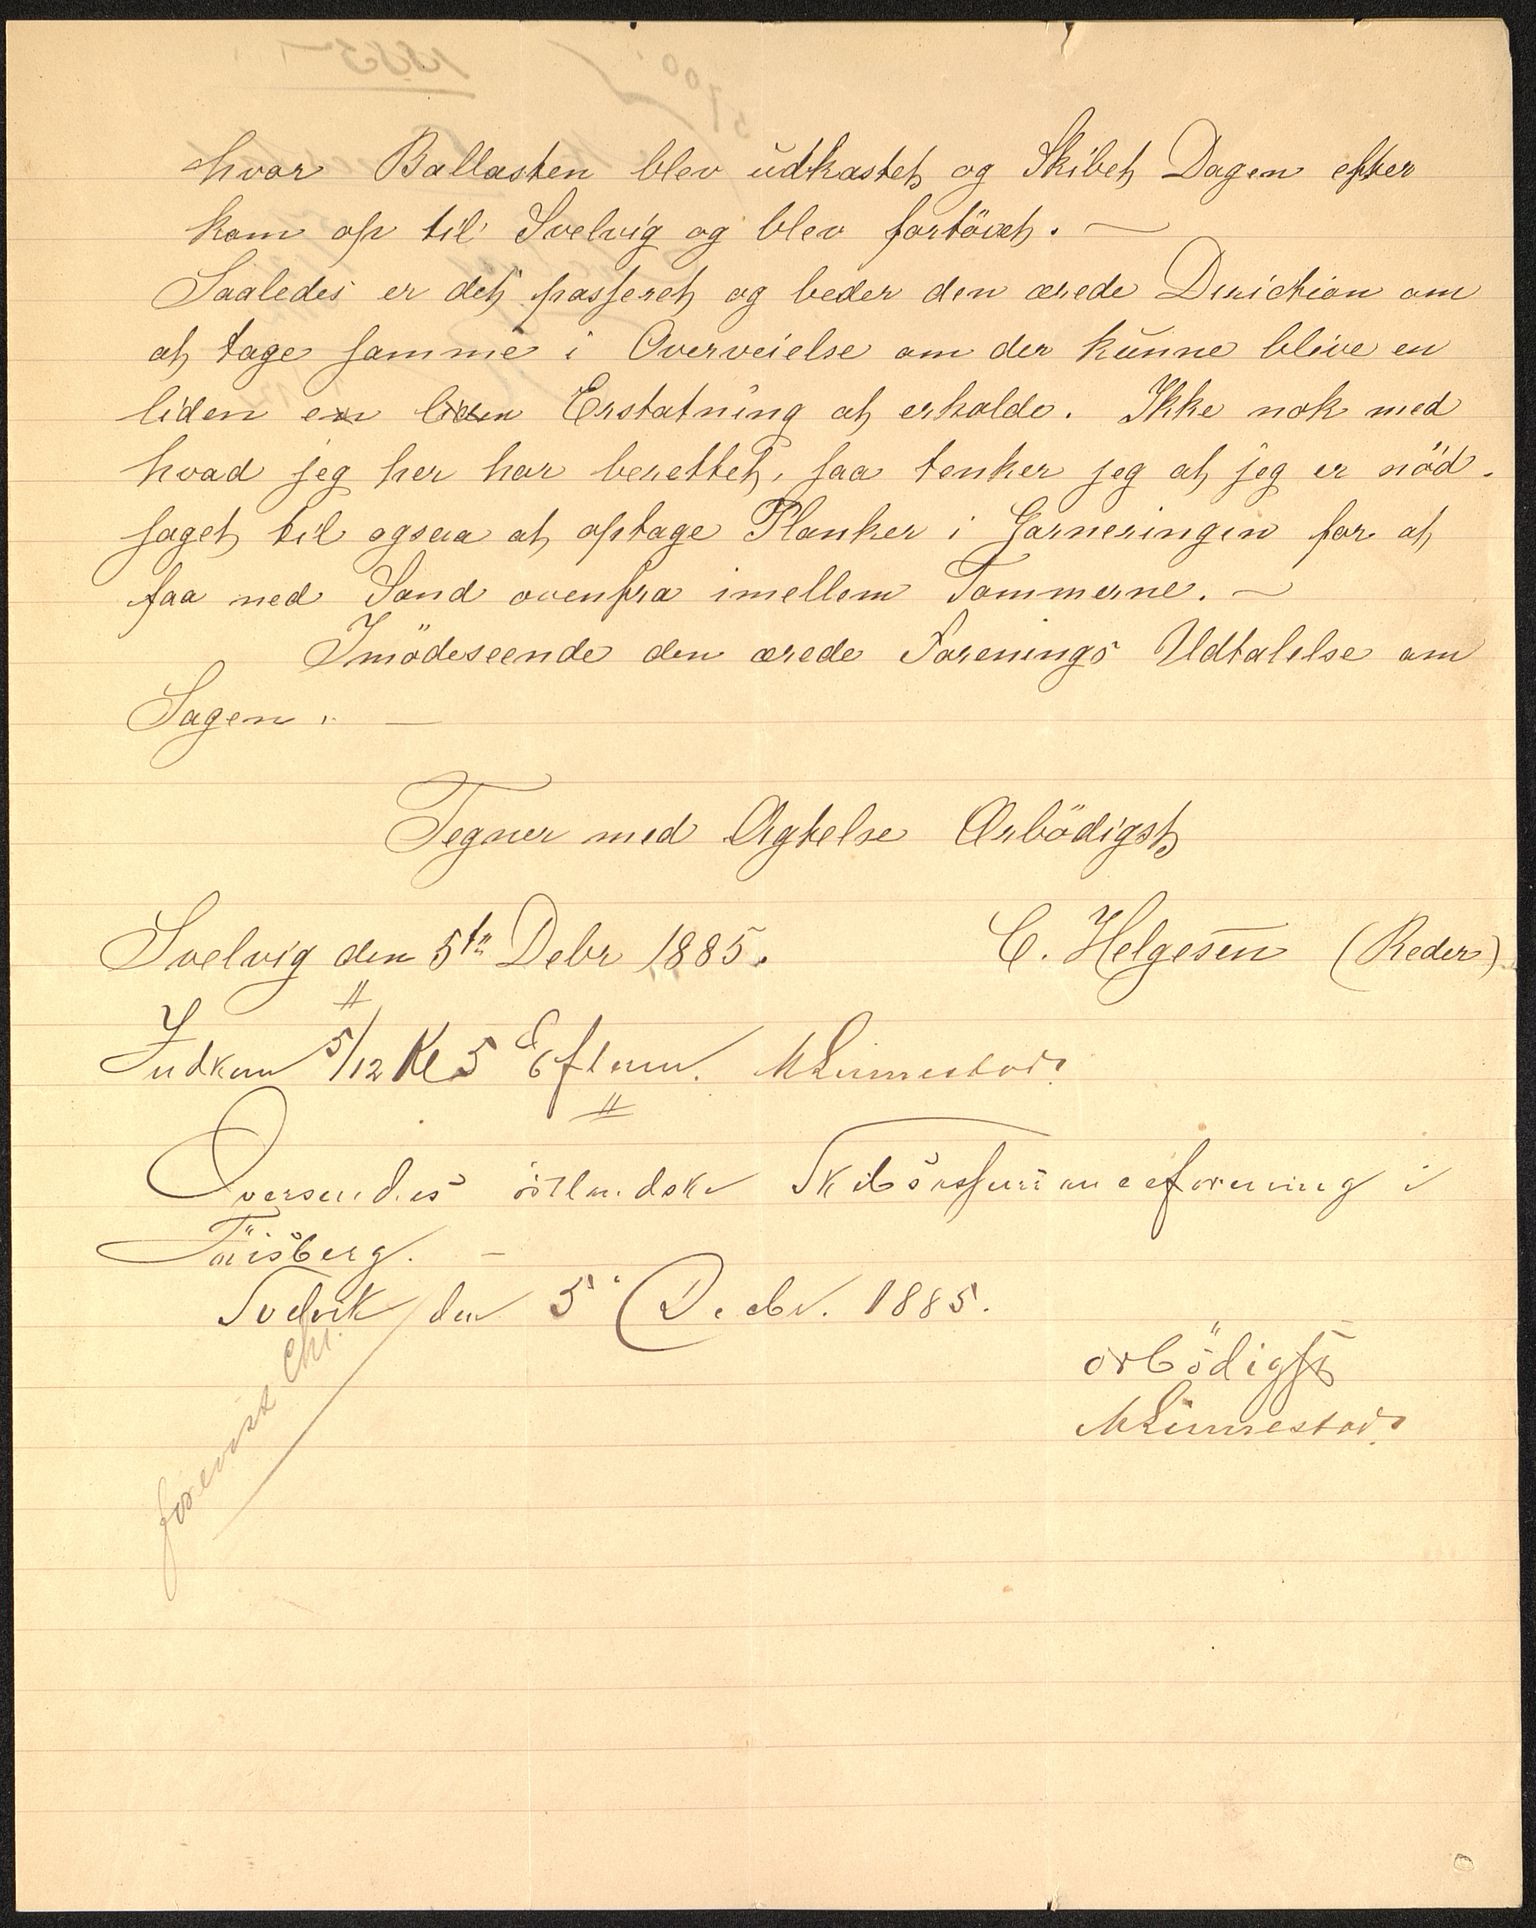 hvor Ballasten blev udkastet og Skibet Dagen efter
kom op til Svelvig og blev fortöiet. —
Saaledes er det passeret og beder den ærede Direktion om
at tage samme i Overveielse om der kunne blive en
liden en liden Erstatning at erholde. Ikke nok med
hvad jeg her har berettet, saa tenker jeg at jeg er nöd-
saget til ogsaa at optage Planker i Garneringen for at
faa ned Sand ovenfra imellem Tommerne. —
Imödeseende den ærede Forenings Udtalelse om
Sagen. —
Tegner med Agtelse Ærbödigst
Svelvig den 5te Debr 1885.
C. Helgesen (Reder)
Indkom 5/12 Kl 5 Efterm. M Linnestad
Oversendes östlandske Skibsassuranceforening i
Tönsberg. —
Svelvik den 5 Decbr. 1885.
ærbödigst
M Linnestad
forevist Chr.